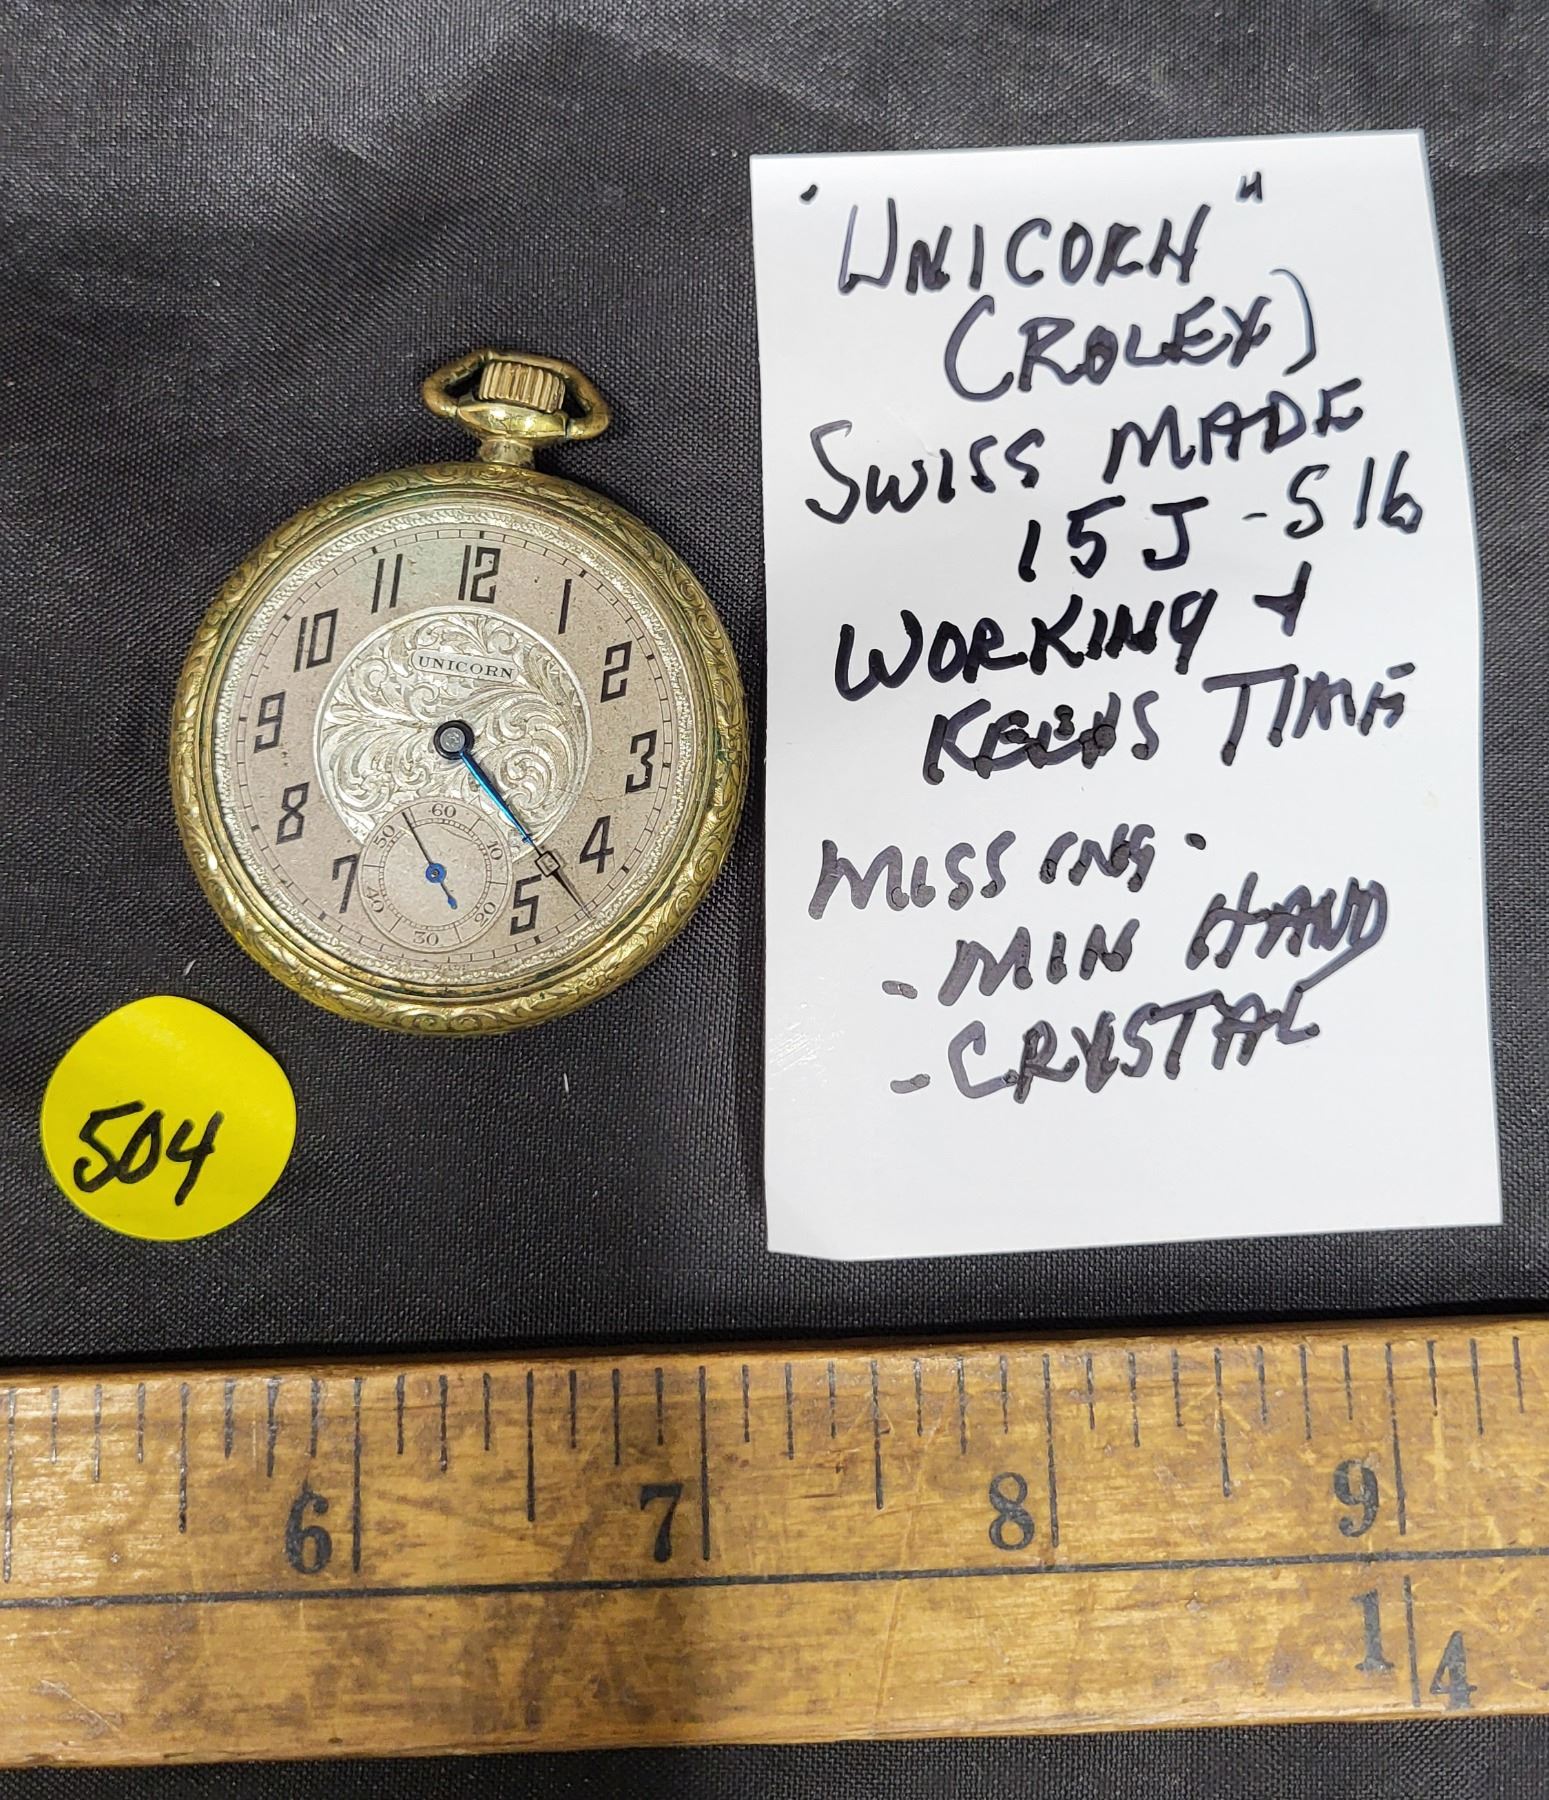 "UNICORN"
(ROLEX)
SWISS MADE
15J - S16
WORKING +
KEEPS TIME
MISSING -
- MIN HAND
- CRYSTAL
12
1
2
3
4
5
7
8
9
10
11
UNICORN
60
10
20
30
40
50
504
6 7 8 9
1 4